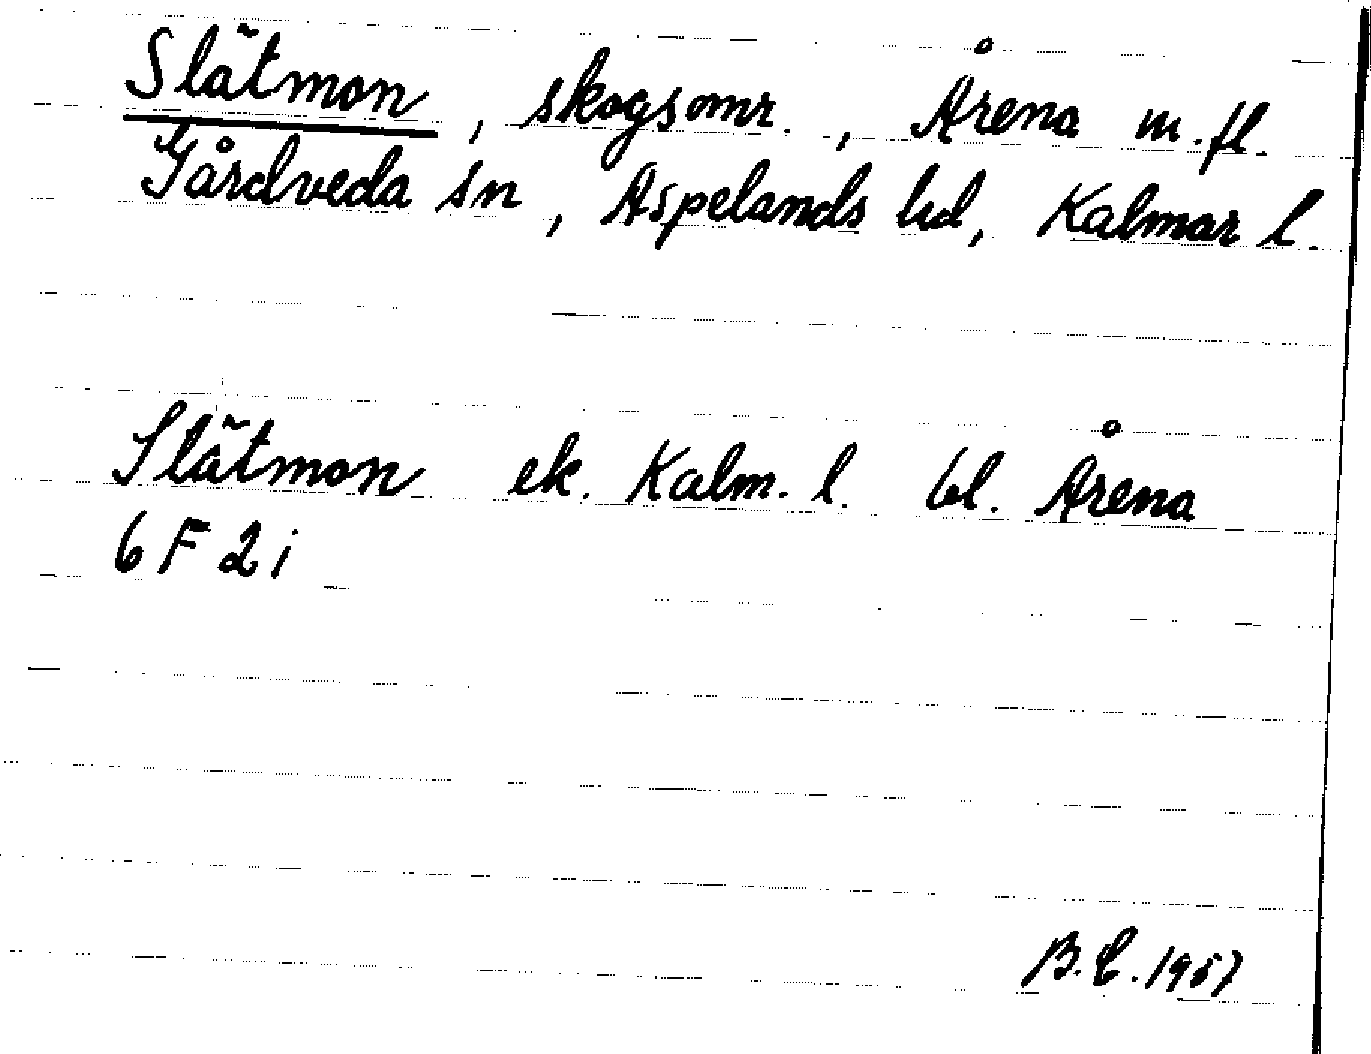 Slätmon, skogsomr., Årena m.fl.
Gårdveda sn, Aspelands hd, Kalmar l.
Slätmon ek. Kalm. l. bl. Årena
6 F 2 i
B.E. 1957